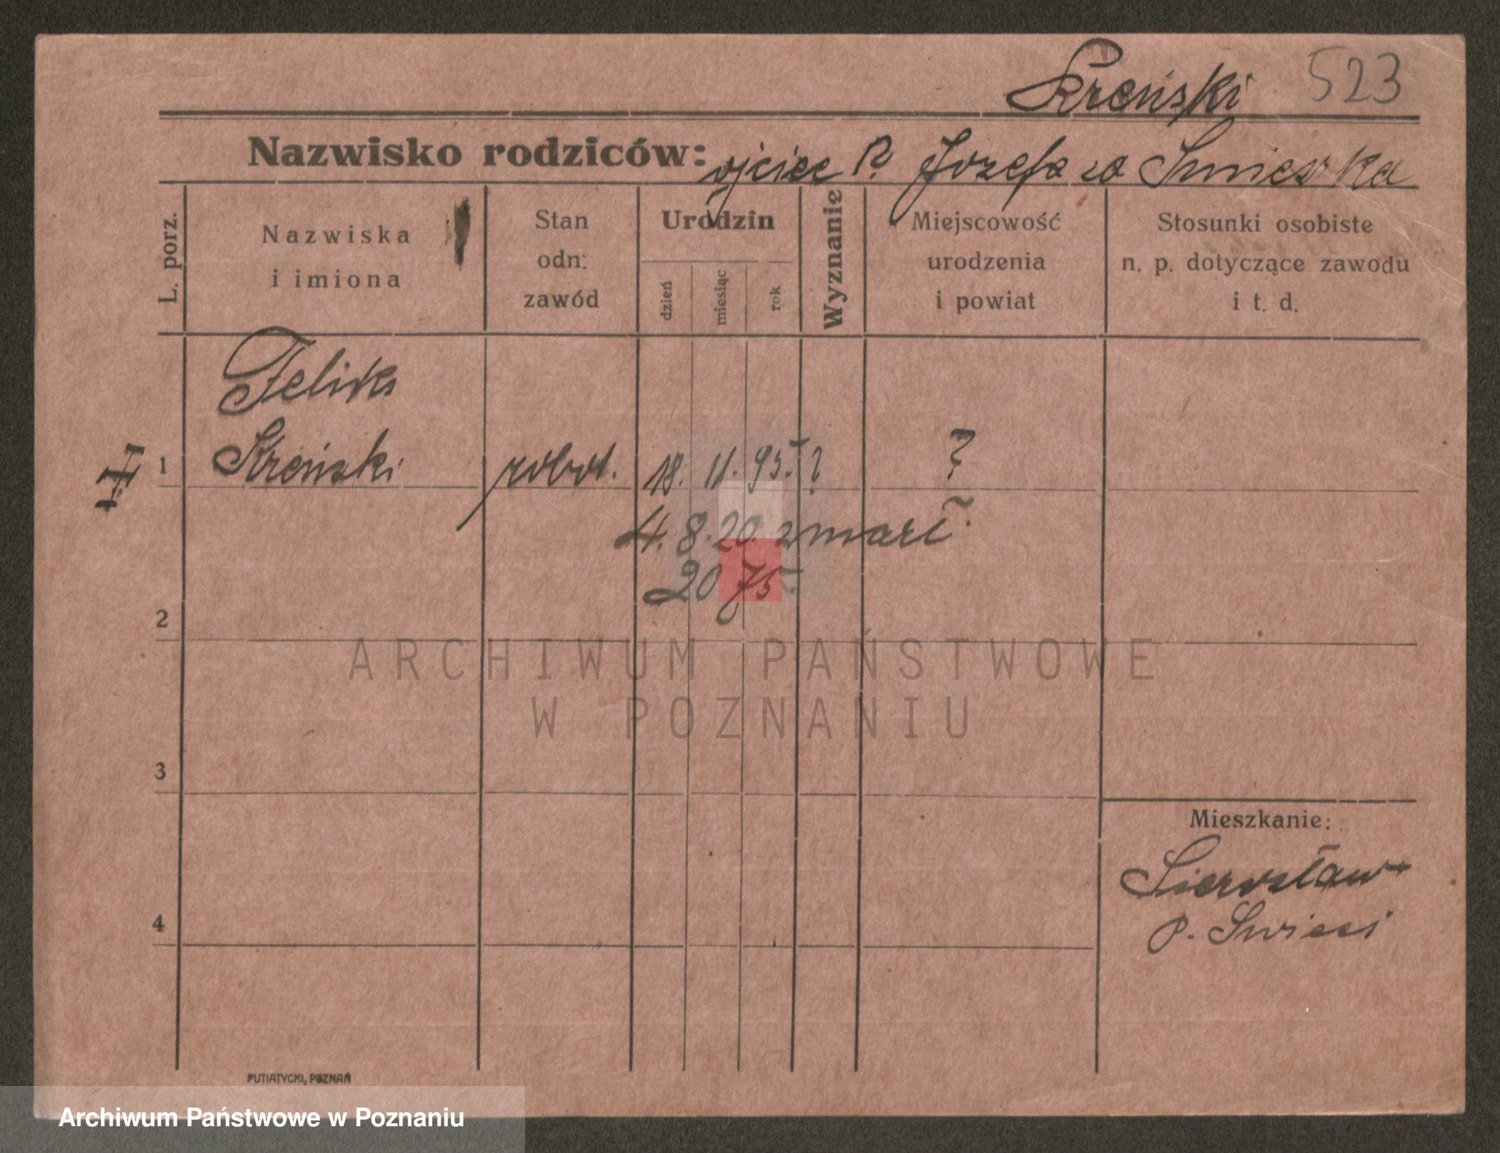 Kreński 523
Nazwisko rodziców: ojciec ? Józefa zo Smieska
L. porz.
Nazwiska
i imiona
Stan
odn:
zawód
Urodzin
dzień
miesiąc
rok
Wyznanie
Miejscowość
urodzenia
i powiat
Stosunki osobiste
n. p. dotyczące zawodu
i t. d.
Feliks
1 Kreński robot. 18. 11. 95. ? ?
4. 8. 20. zmarł
20 75
2
ARCHIWUM PAŃSTWOWE
W POZNANIU
3
Mieszkanie:
Sierosław
p. Swieci
4
PUTIATYCKI, POZNAŃ
Archiwum Państwowe w Poznaniu